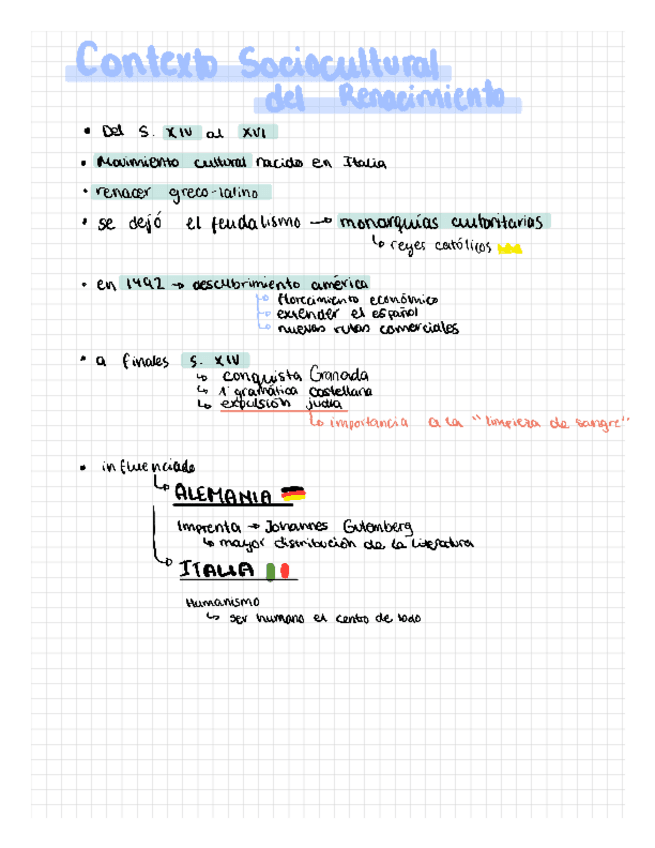 Contexto Sociocultural
del Renacimiento
• Del S. XIV al XVI
• Movimiento cultural nacido en Italia
• renacer greco-latino
• se dejó el feudalismo → monarquías autoritarias
↳ reyes católicos
• en 1492 → descubrimiento américa
↳ florecimiento económico
↳ extender el español
↳ nuevas rutas comerciales
• a finales S. XIV
↳ conquista Granada
↳ 1ª gramática castellana
↳ expulsión judía
↳ importancia a la "limpieza de sangre"
• influenciado
↳ ALEMANIA
Imprenta → Johannes Gutemberg
↳ mayor distribución de la literatura
↳ ITALIA
Humanismo
↳ ser humano el centro de todo